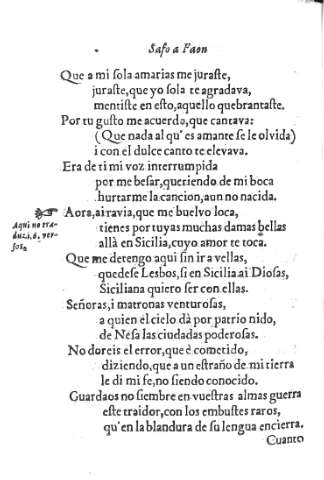 Safo a Faon
Que a mi sola amarias me juraste,
juraste, que yo sola te agradava,
mentiste en esto, aquello quebrantaste.
Por tu gusto me acuerdo, que cantava:
(Que nada al qu'es amante se le olvida)
i con el dulce canto te elevava.
Era de ti mi voz interrumpida
por me besar, queriendo de mi boca
hurtarme la cancion, aun no nacida.
Aora, ai ravia, que me buelvo loca,
tienes por tuyas muchas damas bellas
allà en Sicilia, cuyo amor te toca.
Aqui no tra-
duzi, 6, ver-
sos.
Que me detengo aqui sin ir a vellas,
quedese Lesbos, si en Sicilia ai Diosas,
Siciliana quiero ser con ellas.
Señoras, i matronas venturosas,
a quien el cielo dà por patrio nido,
de Nesa las ciudadas poderosas.
No doreis el error, que è cometido,
diziendo, que a un estraño de mi tierra
le di mi fe, no siendo conocido.
Guardaos no siembre en vuestras almas guerra
este traidor, con los embustes raros,
qu'en la blandura de su lengua encierra.
Cuanto